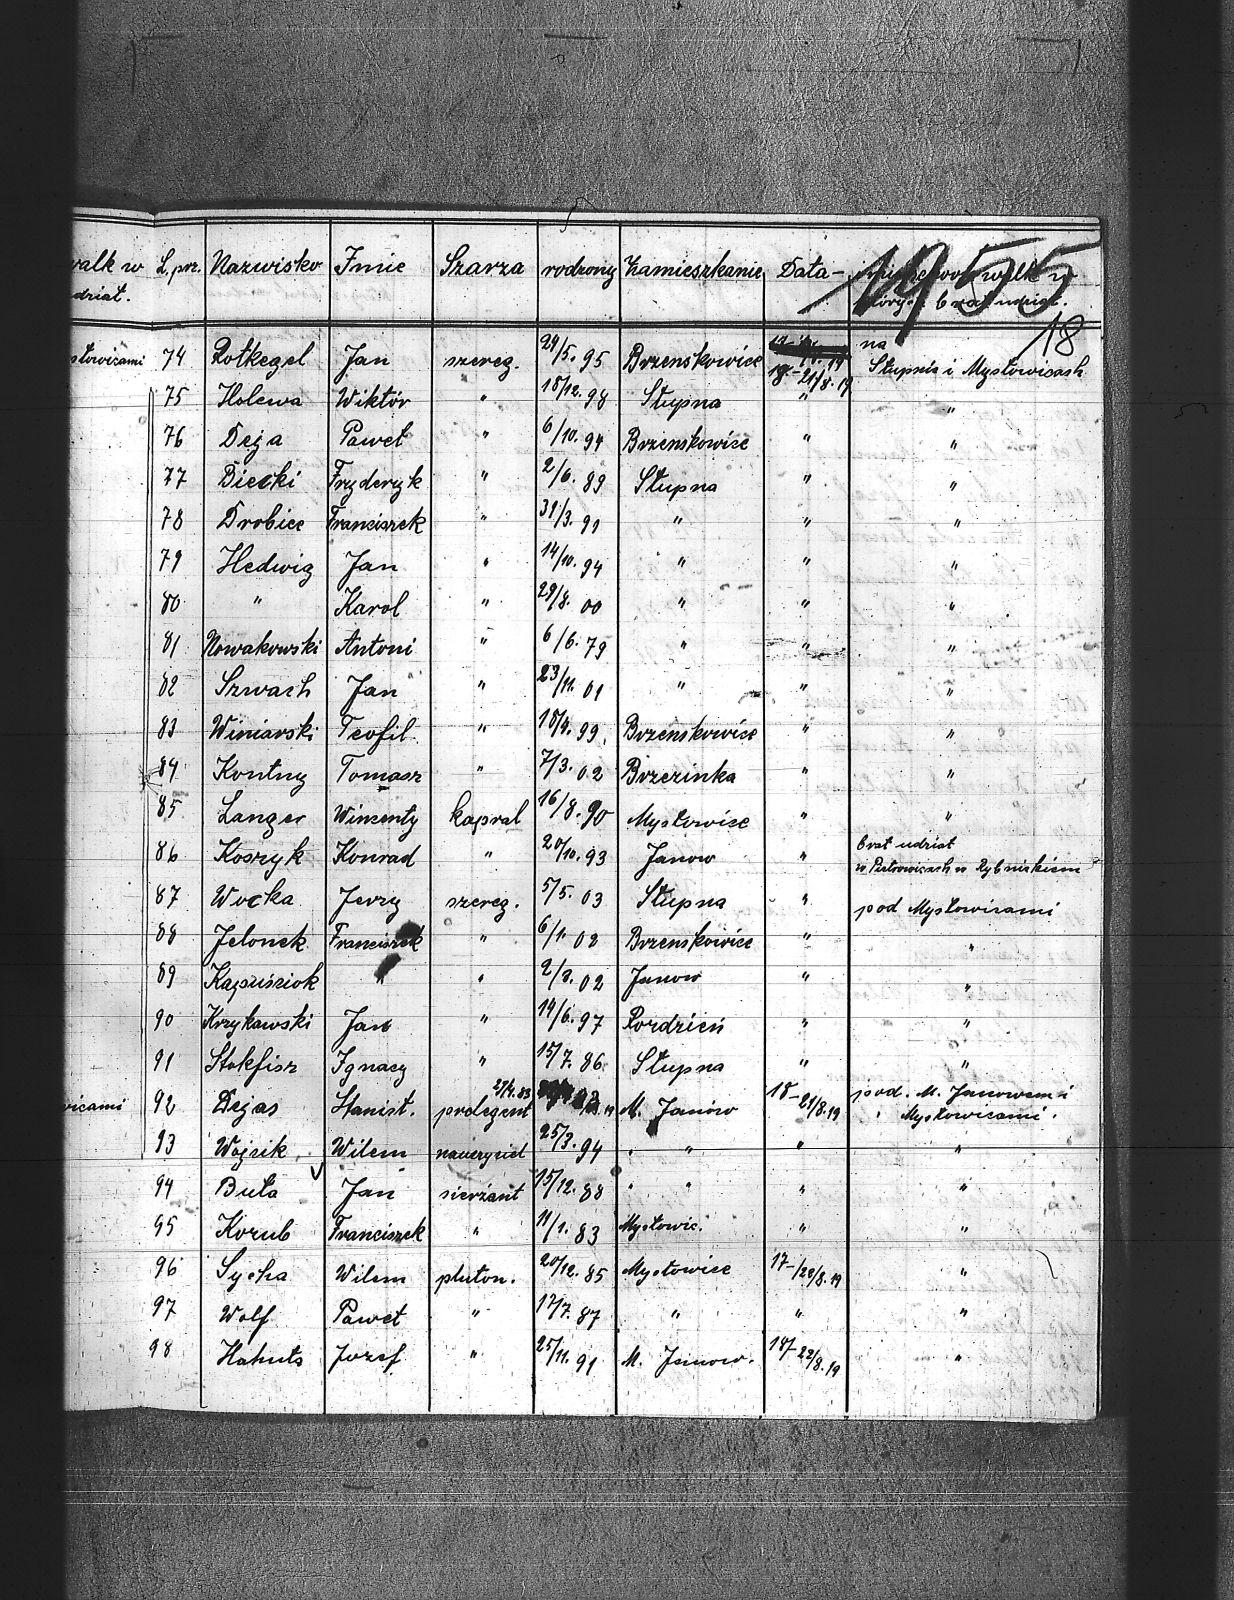 walk w L. prz. Nazwisko Imie Szarza rodzony Zamieszkanie Data walk w
udziat. brat udziat.
1955
18
stowicami 74 Rotkegel Jan szereg. 29/5. 95 Brzenskowice 18.-21/8.19 na Stupnia i Mystowicach
75 Holewa Wiktór " 18/12. 98 Stupna " "
76 Deja Pawet " 6/10. 94 Brzenskowice " "
77 Biecki Fryderyk " 2/6. 89 Stupna " "
78 Drobiec Franciszek " 31/3. 91 " " "
79 Hedwig Jan " 14/10. 94 " " "
80 " Karol " 29/8. 00 " " "
81 Nowakowski Antoni " 6/6. 79 " " "
82 Szwach Jan " 23/11. 01 " " "
83 Winiarski Teofil " 18/4. 99 Brzenskowice " "
84 Kontny Tomasz " 7/3. 02 Brzezinka " "
85 Langer Wincenty kapral 16/8. 90 Mystowice " "
86 Koszyk Konrad " 20/10. 93 Janow " brat udziat
w Pietrowicach w Rybnickiem
87 Wocka Jerzy szereg. 5/5. 03 Stupna " pod Mystowicami
88 Jelonek Franciszek " 6/1. 02 Brzenskowice " "
89 Kapuśziok " " 2/8. 02 Janow " "
90 Krzykawski Jan " 14/6. 97 Rozdzień " "
91 Stokfisz Ignacy " 15/7. 86 Stupna " "
wicami 92 Dejas Stanist. prolegent 27/4. 83 M. Janów 18-21/8.19 pod. M. Janowem i
Mystowicami.
93 Wojcik Wilem 25/3. 94 " " " "
94 Buta Jan sierżant 15/12. 88 " " " "
95 Korub Franciszek " 11/1. 83 Mystowic. " "
96 Sycha Wilem pluton. 20/12. 85 Mystowice 17-/22/8.19 "
97 Wolf Pawet " 17/7. 87 " " "
98 Hahuts Jozef " 25/11. 91 M. Janow. 18/-22/8.19 "